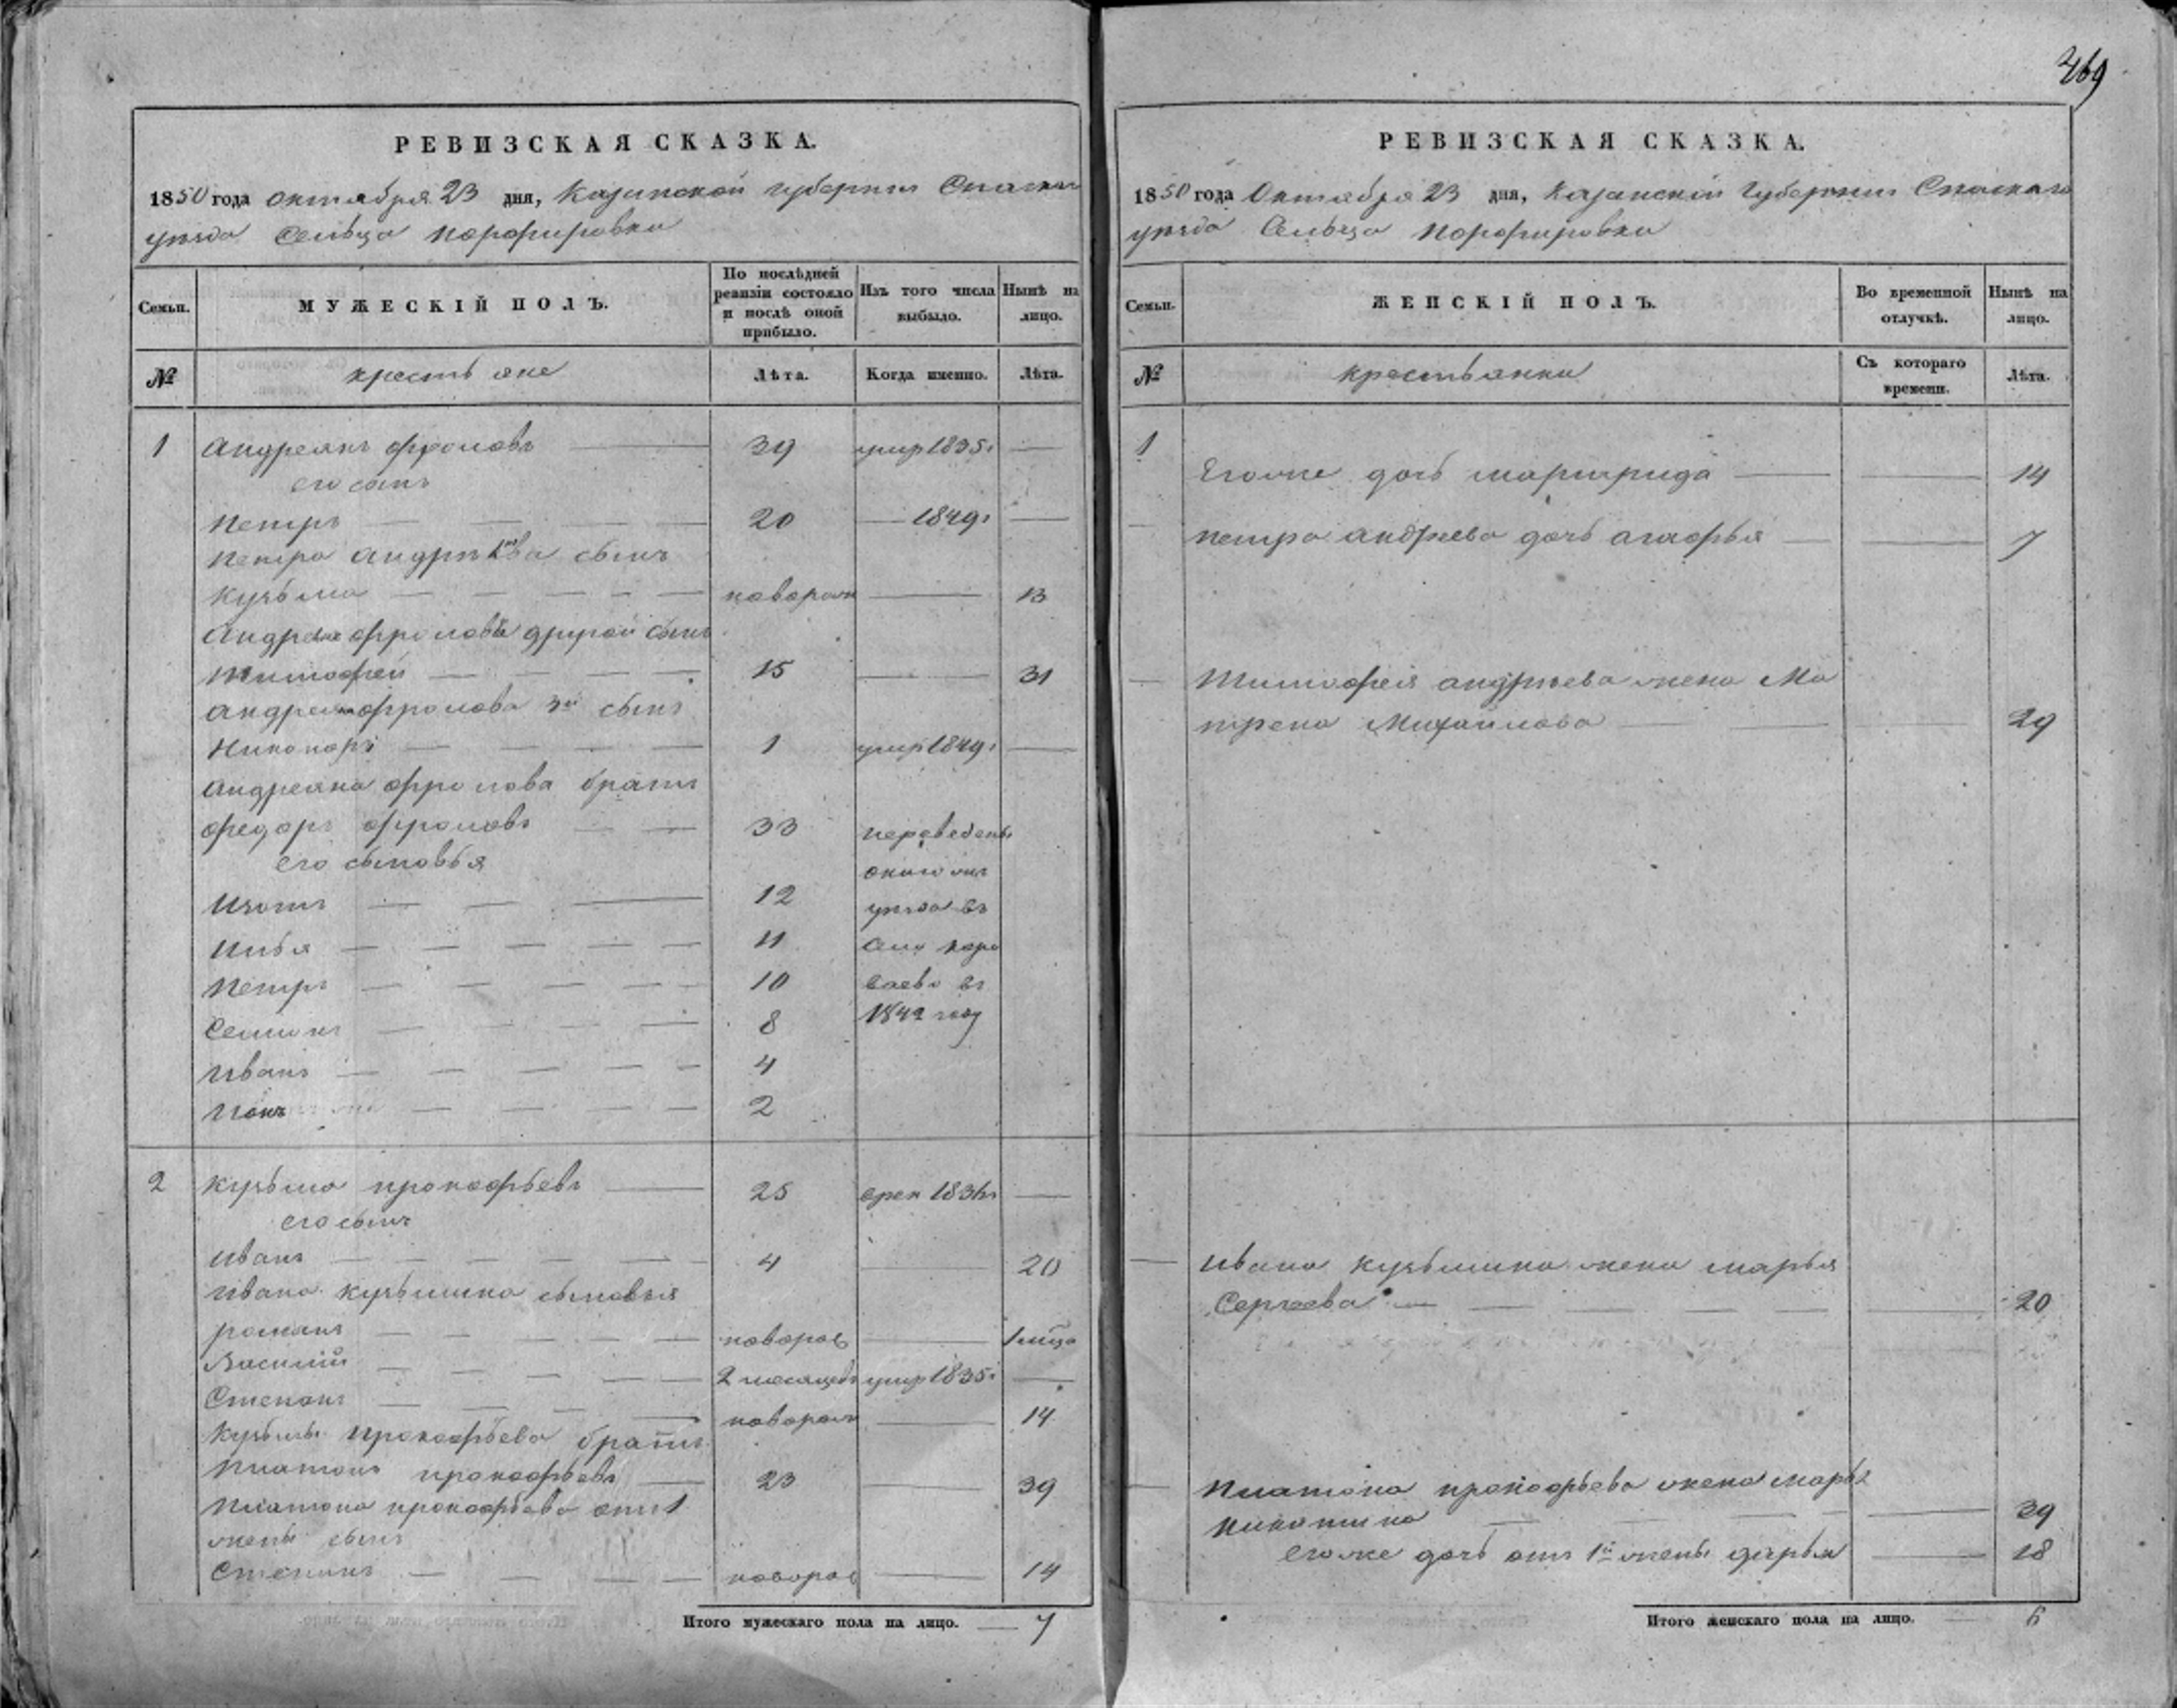 469
РЕВИЗСКАЯ СКАЗКА.
1850 года октября 23 дня, Казанской губернии Спаскаго
уезда Сельца Порфировки
Семьи.
МУЖЕСКІЙ ПОЛЪ.
По послѣдней ревизіи состояло и послѣ оной прибыло.
Изъ того числа выбыло.
Нынѣ на лицо.
№
крестьяне
Лѣта.
Когда именно.
Лѣта.
1 Андреянъ Фроловъ 39 умир 1835г
его сынъ
Петръ 20 — 1849г
Петра Андреева сынъ
Кузьма новорож 13
Андреяна Фролова другой сынъ
Тимофей 15 31
Андреяна Фролова 3й сынъ
Никоноръ 1 умир 1849г
Андреяна Фролова братъ
Федоръ Фроловъ 33 переведены
его сыновья
12 уезда въ
Илья 11
Петръ 10 въ
Семенъ 8 1842 году
Иванъ 4
2
2 Кузьма Прокофьевъ 25
его сынъ
Иванъ 4 20
Ивана Кузьмина сыновья
Романъ новорож
Василий 2 месяцевъ умир 1835г
Степанъ новорож 14
Кузьмы Прокофьева братъ
Платонъ Прокофьевъ 23 39
Платона Прокофьева отъ 1
жены сынъ
Степанъ новорож 14
Итого мужескаго пола на лицо. 7
РЕВИЗСКАЯ СКАЗКА.
1850 года Октября 23 дня, Казанской Губернии Спаскаго
уезда Сельца Порфировки
Семьи.
ЖЕНСКІЙ ПОЛЪ.
Во временной отлучкѣ.
Нынѣ на лицо.
№
крестьянки
Съ котораго времени.
Лѣта.
1
Его же дочь 14
Петра Андреева дочь Агафья 7
Тимофея Андреева жена Ма
трена Михайлова 29
Ивана Кузьмина жена Марья
Сергеева 20
Платона Прокофьева жена Марья
Никитина 39
Его же дочь отъ 1й жены Дарья 18
Итого женскаго пола на лицо. 6